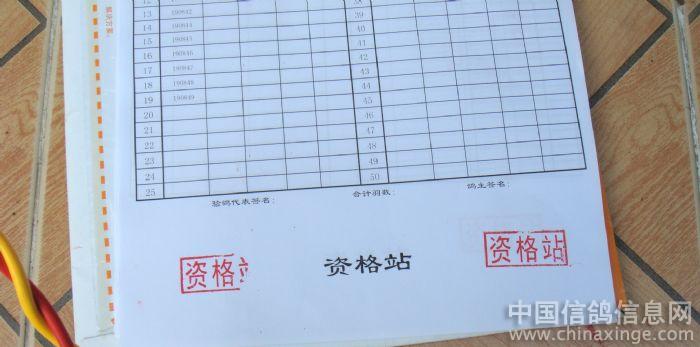 解决方案。
12 38
13 190842 39
14 190843 40
15 190844 41
16 190845 42
17 190847 43
18 190848 44
19 190849 45
20 46
21 47
22 48
23 49
24
25 50
验鸽代表签名： 合计羽数： 鸽主签名：
资格站 资格站 资格站
中国信鸽信息网
www.chinaxinge.com